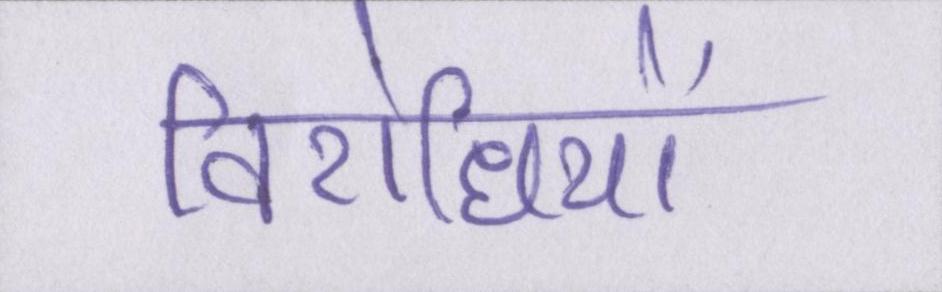 विरोधियों